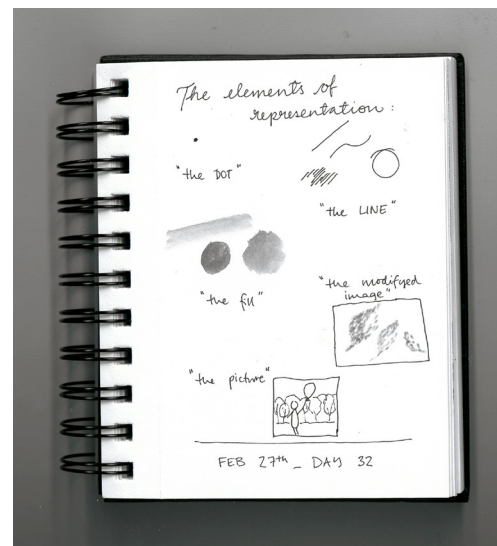 The elements of
representation:
"the DOT"
"the LINE"
"the fill"
"the modifyed
image"
"the picture"
FEB 27th_ DAY 32